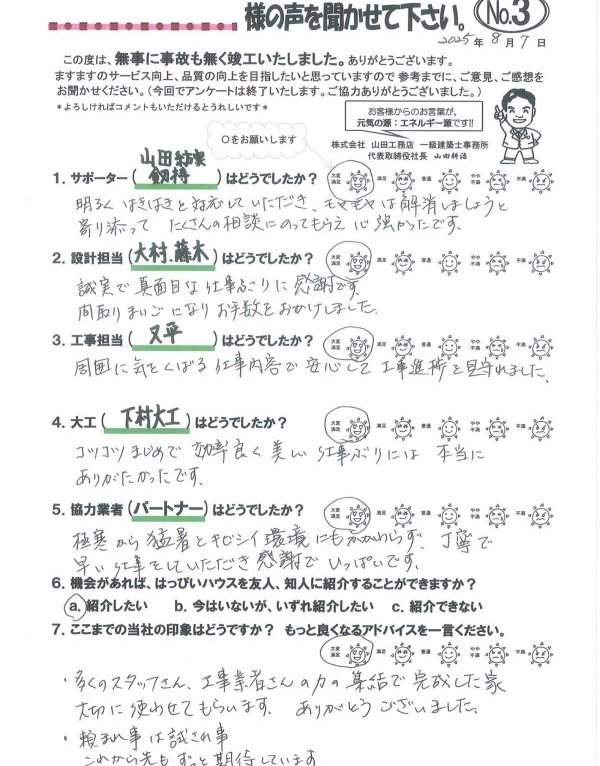 様の声を聞かせて下さい。 No.3
2025年 8月 7日
この度は、無事に事故も無く竣工いたしました。ありがとうございます。
ますますのサービス向上、品質の向上を目指したいと思っていますので 参考までに、ご意見、ご感想を
お聞かせください。（今回でアンケートは終了いたします。ご協力ありがとうございました。）
*よろしければコメントもいただけるとうれしいです*
お客様からのお言葉が、
元気の源：エネルギー源です!!
株式会社 山田工務店 一級建築士事務所
代表取締役社長 山田耕治
○をお願いします
山田 結実
1. サポーター（ 釼持 ）はどうでしたか？ 大変満足 満足 普通 やや不満 不満
明るく はきはきと 対応して いただき、モヤモヤは解消しましょうと
寄り添って たくさんの相談にのってもらえ 心強かったです。
2. 設計担当（大村、藤木）はどうでしたか？ 大変満足 満足 普通 やや不満 不満
誠実で真面目な仕事ぶりに感謝です。
間取りまいごになりお手数をおかけしました。
3. 工事担当（ 又平 ）はどうでしたか？ 大変満足 満足 普通 やや不満 不満
周囲に気をくばる仕事内容で安心して工事進捗を見守れました。
4. 大工（ 下村大工 ）はどうでしたか？ 大変満足 満足 普通 やや不満 不満
コツコツまじめで 効率良く美しい仕事ぶりには 本当に
ありがたかったです。
5. 協力業者（パートナー）はどうでしたか？ 大変満足 満足 普通 やや不満 不満
極寒から猛暑とキビシイ環境にもかかわらず、丁寧で
早い仕事をしていただき感謝でいっぱいです。
6. 機会があれば、はっぴいハウスを友人、知人に紹介することができますか？
a. 紹介したい b. 今はいないが、いずれ紹介したい c. 紹介できない
7. ここまでの当社の印象はどうですか？ もっと良くなるアドバイスを一言ください。
大変満足 満足 普通 やや不満 不満
・多くのスタッフさん、工事業者さんの力の集結で完成した家
大切に使わせてもらいます。ありがとうございました。
・頼まれ事は試され事
これから先もずっと期待しています